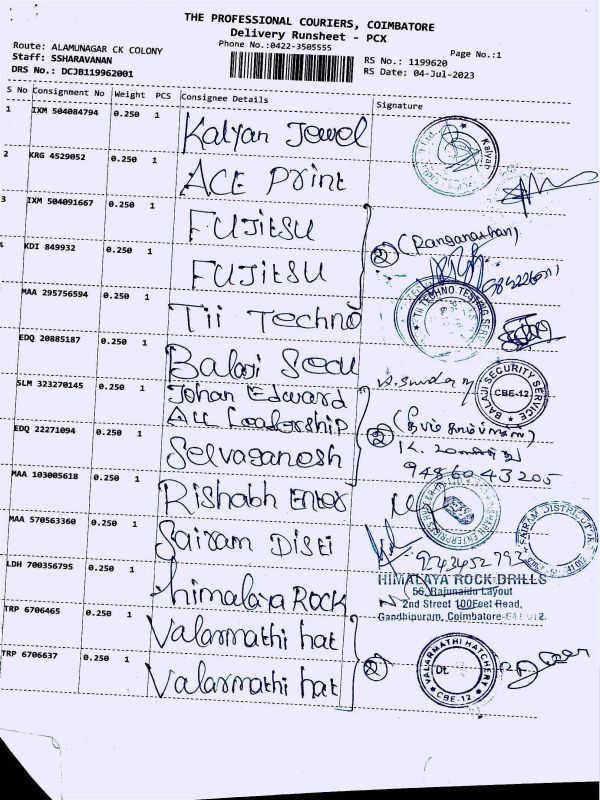 THE PROFESSIONAL COURIERS, COIMBATORE
Delivery Runsheet - PCX
Phone No.:0422-3505555
Page No.:1
Route: ALAMUNAGAR CK COLONY
Staff: SSHARAVANAN
DRS No.: DCJB119962001
RS No.: 1199620
RS Date: 04-Jul-2023
S No Consignment No Weight PCS Consignee Details Signature
1 IXM 504084794 0.250 1 Kalyan Jewel
Kalyan
2 KRG 4529052 0.250 1 ACE Print
3 IXM 504091667 0.250 1 FUJITSU
② (Ranganathan)
4 KDI 849932 0.250 1 FUJITSU
MAA 295756594 0.250 1 Tii Techno
TII TECHNO TESTING SER
EDQ 20885187 0.250 1 Balaji Secu
BALAJI SECURITY SERVICE
CBE-12
SLM 323270145 0.250 1 Johan Edward
All Leadership
②
EDQ 22271094 0.250 1 Selvaganesh
9486043205
MAA 103005618 0.250 1 Rishabh Enter
MAA 570563360 0.250 1 Sairam Disti
SAIRAM DISTRIBUTOR
9243452793
LDH 700356795 0.250 1 himalaya ROCK
HIMALAYA ROCK DRILLS
56, Rajunaidu Layout
2nd Street 100Feet Road,
Gandhipuram, Coimbatore-641 012.
TRP 6706465 0.250 1 Valarmathi hat
②
VALARMATHI HATCHERY
CBE-12
TRP 6706637 0.250 1 Valarmathi hat